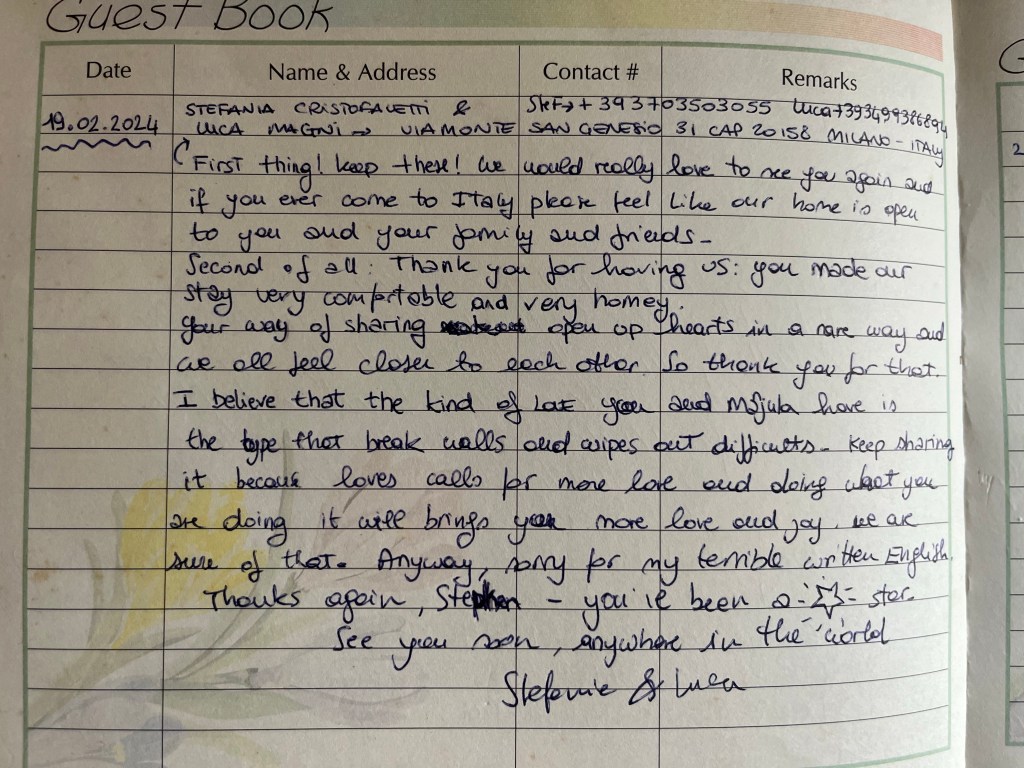 GUEST BOOK
Date Name & Address Contact # Remarks
STEFANIA CRISTOFALETTI & Stef→ + 393703503055 Luca+393499386894
19.02.2024 LUCA MAGNI → VIA MONTE SAN GENESIO 31 CAP 20158 MILANO - ITALY
First thing! keep these! We would really love to see you again and
if you ever come to Italy please feel like our home is open
to you and your family and friends -
Second of all: Thank you for having us: you made our
stay very comfortable and very homey.
Your way of sharing open up hearts in a rare way and
we all feel closer to each other. So thank you for that.
I believe that the kind of you and have is
the type that break walls and wipes out difficults - keep sharing
it because loves calls for more love and doing what you
are doing it will brings you more love and joy, we are
sure of that. Anyway, sorry for my terrible written English.
Thanks again, Stephen - you've been a star
See you soon, anywhere in the world
Stefania & Luca
2